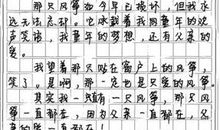 那只风筝如今早已残旧，但我永
远无法忘记。它承载着我童年的欢
声笑语，我童年的梦想，还有父亲的
爱。
我望着那只贴在窗户上的风筝，
笑了。是啊，那一定也是只爱的风筝。
其实我一只有一只风筝，那只风
筝一直都在，因为父亲一直都在，父
亲的爱一直都在！